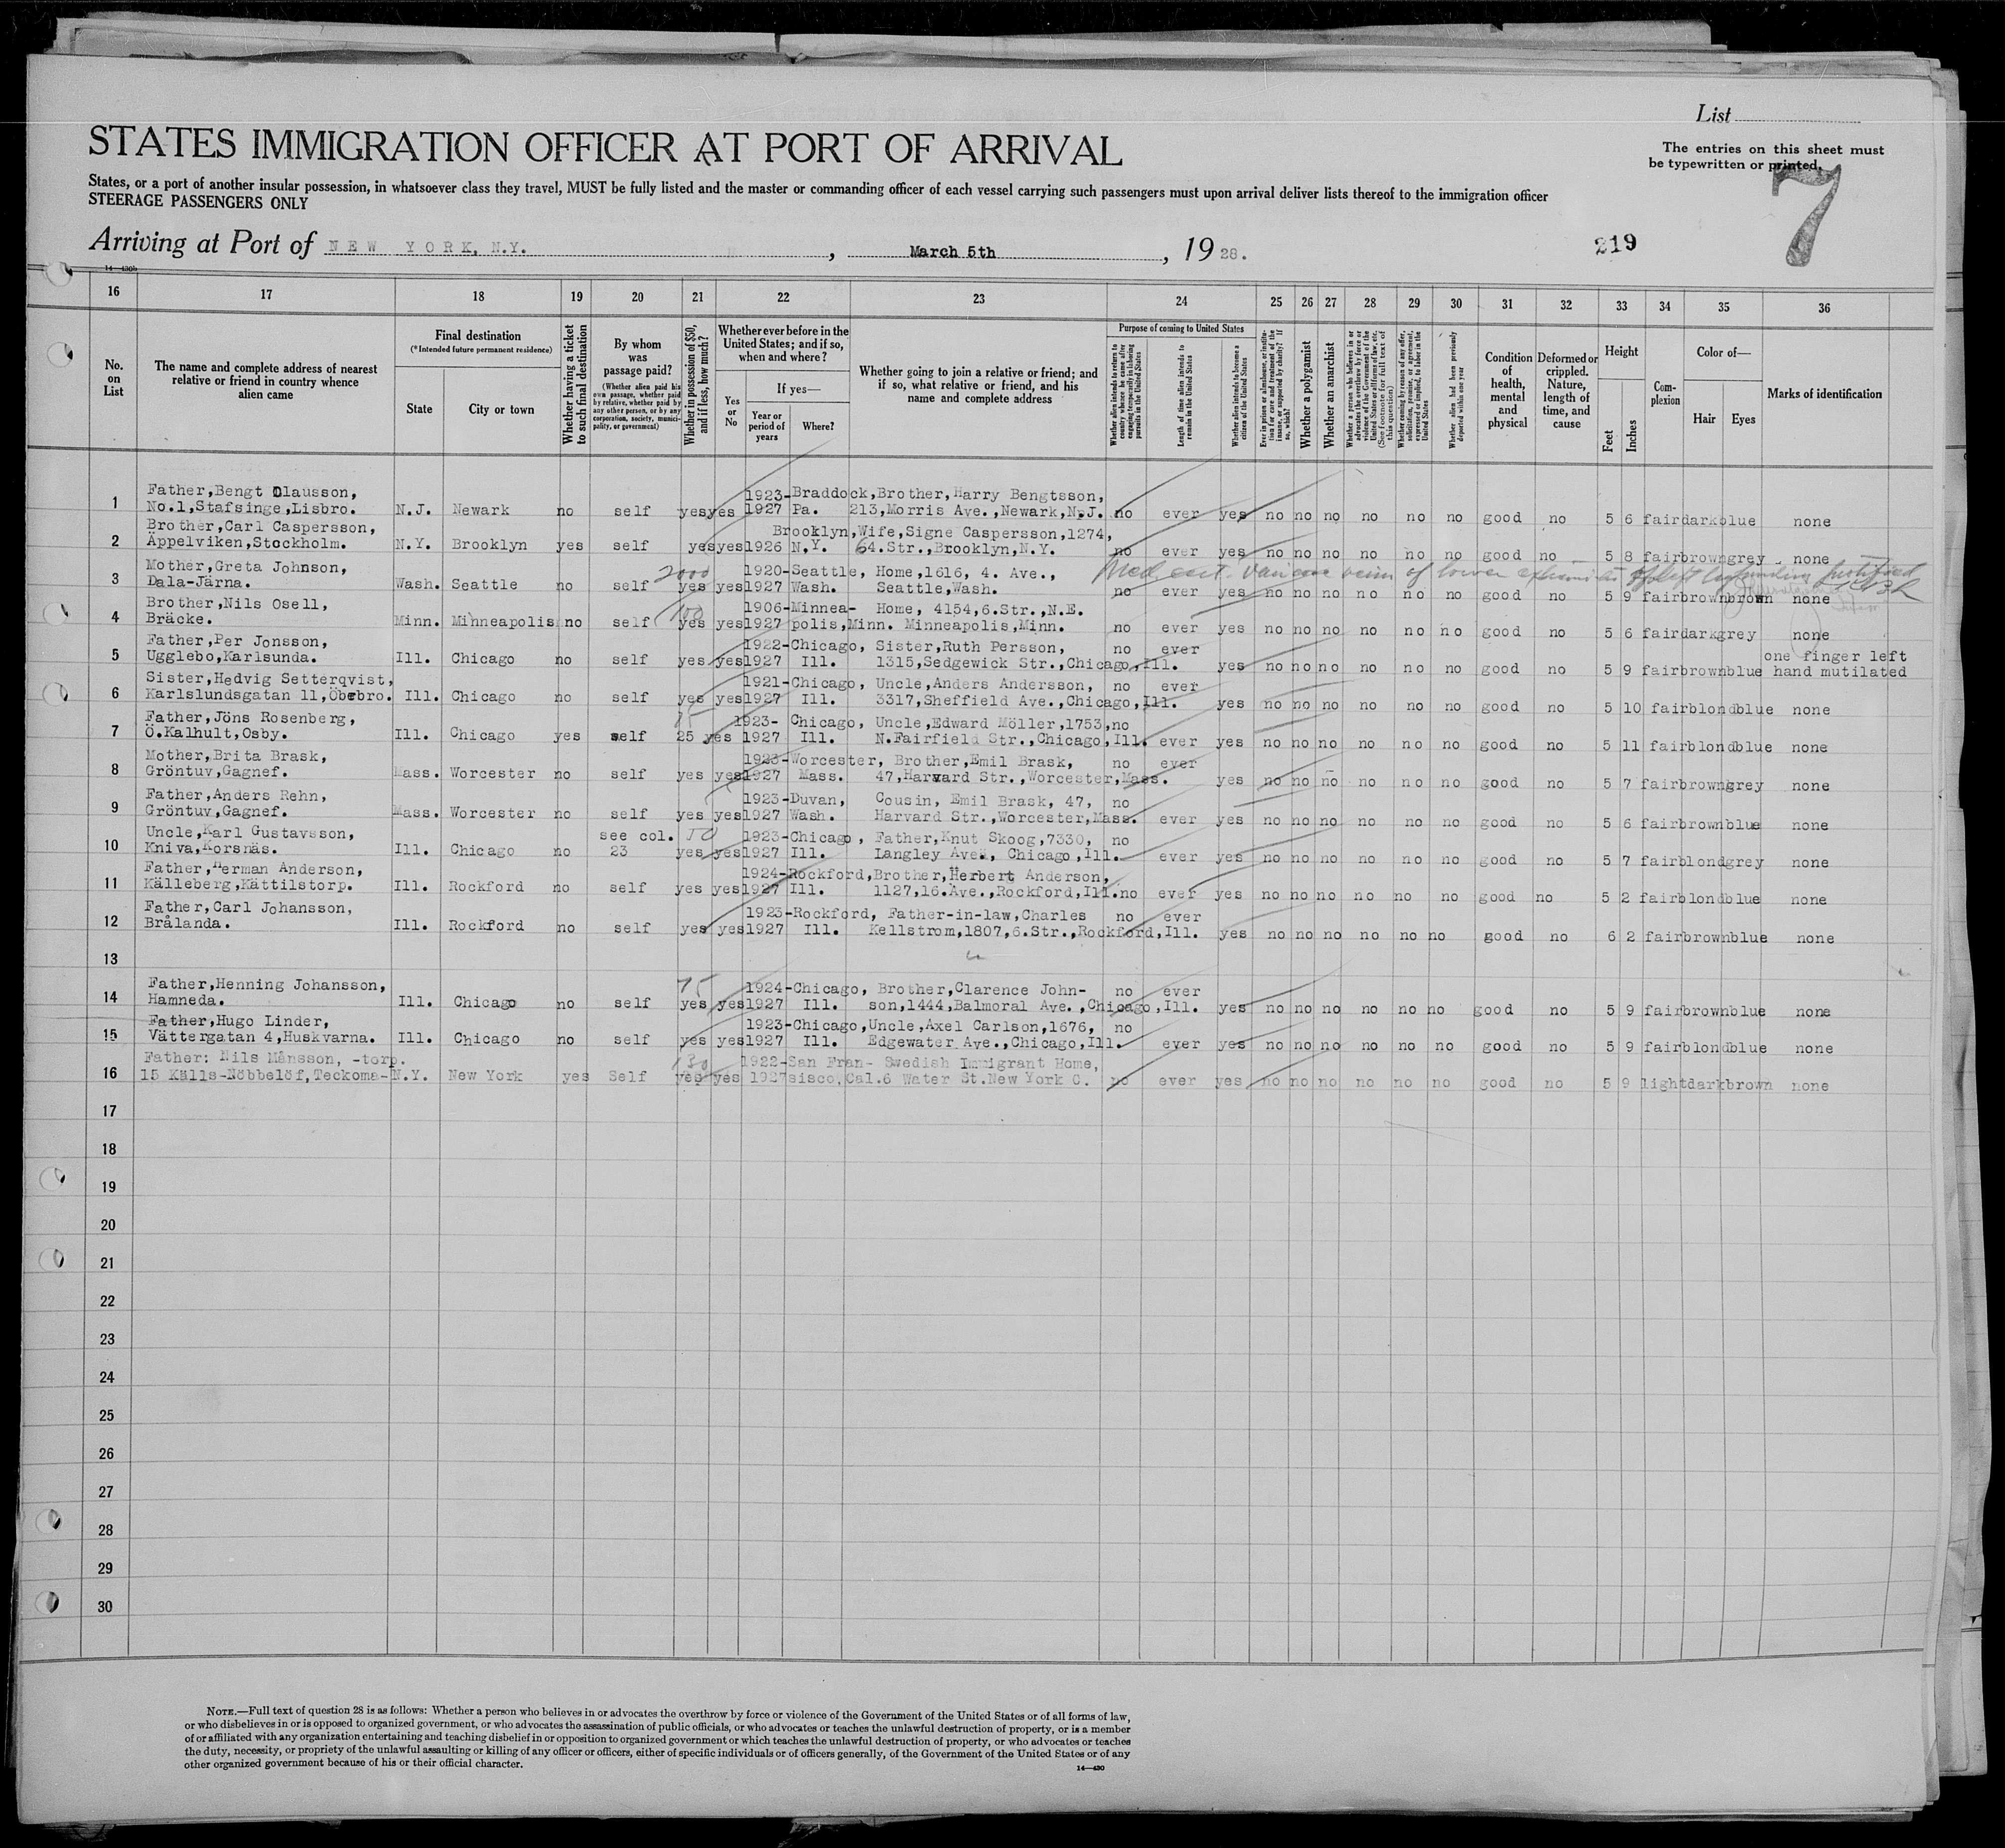 List
STATES IMMIGRATION OFFICER AT PORT OF ARRIVAL
The entries on this sheet must
be typewritten or printed.
States, or a port of another insular possession, in whatsoever class they travel, MUST be fully listed and the master or commanding officer of each vessel carrying such passengers must upon arrival deliver lists thereof to the immigration officer
STEERAGE PASSENGERS ONLY
7
Arriving at Port of NEW YORK, N.Y. , March 5th , 1928.
219
14—430b
16 17 18 19 20 21 22 23 24 25 26 27 28 29 30 31 32 33 34 35 36
No. on List
The name and complete address of nearest relative or friend in country whence alien came
Final destination
(*Intended future permanent residence)
State
City or town
Whether having a ticket to such final destination
By whom was passage paid?
(Whether alien paid his own passage, whether paid by relative, whether paid by any other person, or by any corporation, society, municipality, or government)
Whether in possession of $50, and if less, how much?
Whether ever before in the United States; and if so, when and where?
Yes or No
If yes—
Year or period of years
Where?
Whether going to join a relative or friend; and if so, what relative or friend, and his name and complete address
Purpose of coming to United States
Whether alien intends to return to country whence he came after engaging temporarily in laboring pursuits in the United States
Length of time alien intends to remain in the United States
Whether alien intends to become a citizen of the United States
Ever in prison or almshouse, or institution for care and treatment of the insane, or supported by charity? If so, which?
Whether a polygamist
Whether an anarchist
Whether a person who believes in or advocates the overthrow by force or violence of the Government of the United States or all forms of law, etc. (See footnote for full text of this question)
Whether coming by reason of any offer, solicitation, promise, or agreement, expressed or implied, to labor in the United States
Whether alien had been previously deported within one year
Condition of health, mental and physical
Deformed or crippled. Nature, length of time, and cause
Height
Feet
Inches
Complexion
Color of—
Hair
Eyes
Marks of identification
Father,Bengt Olausson, 1923-Braddock,Brother,Harry Bengtsson,
1 No.1,Stafsinge,Lisbro. N.J. Newark no self yes yes 1927 Pa. 213,Morris Ave.,Newark,N.J. no ever yes no no no no no no good no 5 6 fair dark blue none
Brother,Carl Caspersson, Brooklyn,Wife,Signe Caspersson,1274,
2 Äppelviken,Stockholm. N.Y. Brooklyn yes self yes yes 1926 N.Y. 64.Str.,Brooklyn,N.Y. no ever yes no no no no no no good no 5 8 fair brown grey none
Mother,Greta Johnson, 2000 1920-Seattle, Home,1616, 4. Ave., Med cert. varicose veins of lower
3 Dala-Järna. Wash. Seattle no self yes yes 1927 Wash. Seattle,Wash. no ever yes no no no no no no good no 5 9 fair brown brown none
Brother,Nils Osell, 100 1906-Minnea- Home, 4154,6.Str.,N.E.
4 Bräcke. Minn. Minneapolis no self yes yes 1927 polis,Minn. Minneapolis,Minn. no ever yes no no no no no no good no 5 6 fair dark grey none
Father,Per Jonsson, 1922-Chicago, Sister,Ruth Persson, no ever one finger left
5 Ugglebo,Karlsunda. Ill. Chicago no self yes yes 1927 Ill. 1315,Sedgewick Str.,Chicago,Ill. yes no no no no no no good no 5 9 fair brown blue hand mutilated
Sister,Hedvig Setterqvist, 1921-Chicago, Uncle,Anders Andersson, no ever
6 Karlslundsgatan 11,Öbebro. Ill. Chicago no self yes yes 1927 Ill. 3317,Sheffield Ave.,Chicago,Ill. yes no no no no no no good no 5 10 fair blond blue none
Father,Jöns Rosenberg, 1923- Chicago, Uncle,Edward Möller,1753, no
7 Ö.Kalhult,Osby. Ill. Chicago yes self 25 yes 1927 Ill. N.Fairfield Str.,Chicago,Ill. ever yes no no no no no no good no 5 11 fair blond blue none
Mother,Brita Brask, 1923-Worcester, Brother,Emil Brask, no ever
8 Gröntuv,Gagnef. Mass. Worcester no self yes yes 1927 Mass. 47,Harvard Str.,Worcester,Mass. yes no no no no no no good no 5 7 fair brown grey none
Father,Anders Rehn, 1923-Duvan, Cousin, Emil Brask, 47, no
9 Gröntuv,Gagnef. Mass. Worcester no self yes yes 1927 Wash. Harvard Str.,Worcester,Mass. ever yes no no no no no no good no 5 6 fair brown blue none
Uncle,Karl Gustavsson, see col. 50 1923-Chicago, Father,Knut Skoog,7330, no
10 Kniva,Korsnäs. Ill. Chicago no 23 yes yes 1927 Ill. Langley Ave., Chicago,Ill. ever yes no no no no no no good no 5 7 fair blond grey none
Father,Herman Anderson, 1924-Rockford,Brother,Herbert Anderson,
11 Källeberg,Kättilstorp. Ill. Rockford no self yes yes 1927 Ill. 1127,16.Ave.,Rockford,Ill. no ever yes no no no no no no good no 5 2 fair blond blue none
Father,Carl Johansson, 1923-Rockford, Father-in-law,Charles no ever
12 Brålanda. Ill. Rockford no self yes yes 1927 Ill. Kellstrom,1807,6.Str.,Rockford,Ill. yes no no no no no no good no 6 2 fair brown blue none
13
Father,Henning Johansson, 75 1924-Chicago, Brother,Clarence John- no ever
14 Hamneda. Ill. Chicago no self yes yes 1927 Ill. son,1444,Balmoral Ave.,Chicago,Ill. yes no no no no no no good no 5 9 fair brown blue none
Father,Hugo Linder, 1923-Chicago,Uncle,Axel Carlson,1676, no
15 Vättergatan 4,Huskvarna. Ill. Chicago no self yes yes 1927 Ill. Edgewater Ave.,Chicago,Ill. ever yes no no no no no no good no 5 9 fair blond blue none
Father: Nils Månsson, -torp. 130 1922-San Fran- Swedish Immigrant Home,
16 15 Källs-Nöbbelöf,Teckoma- N.Y. New York yes Self yes yes 1927 sisco,Cal. 6 Water St.New York C. no ever yes no no no no no no good no 5 9 light dark brown none
17
18
19
20
21
22
23
24
25
26
27
28
29
30
NOTE.—Full text of question 28 is as follows: Whether a person who believes in or advocates the overthrow by force or violence of the Government of the United States or of all forms of law,
or who disbelieves in or is opposed to organized government, or who advocates the assassination of public officials, or who advocates or teaches the unlawful destruction of property, or is a member
of or affiliated with any organization entertaining and teaching disbelief in or opposition to organized government or which teaches the unlawful destruction of property, or who advocates or teaches
the duty, necessity, or propriety of the unlawful assaulting or killing of any officer or officers, either of specific individuals or of officers generally, of the Government of the United States or of any
other organized government because of his or their official character.
14—430